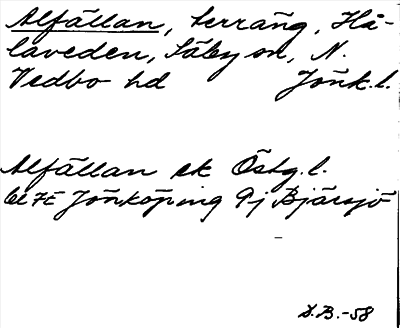 Alfällan, terräng, Hå-
laveden, Säby sn, N.
Vedbo hd Jönk.l.
Alfällan ek Östg.l.
bl 7E Jönköping 9j Bjärsjö
D.B.-58